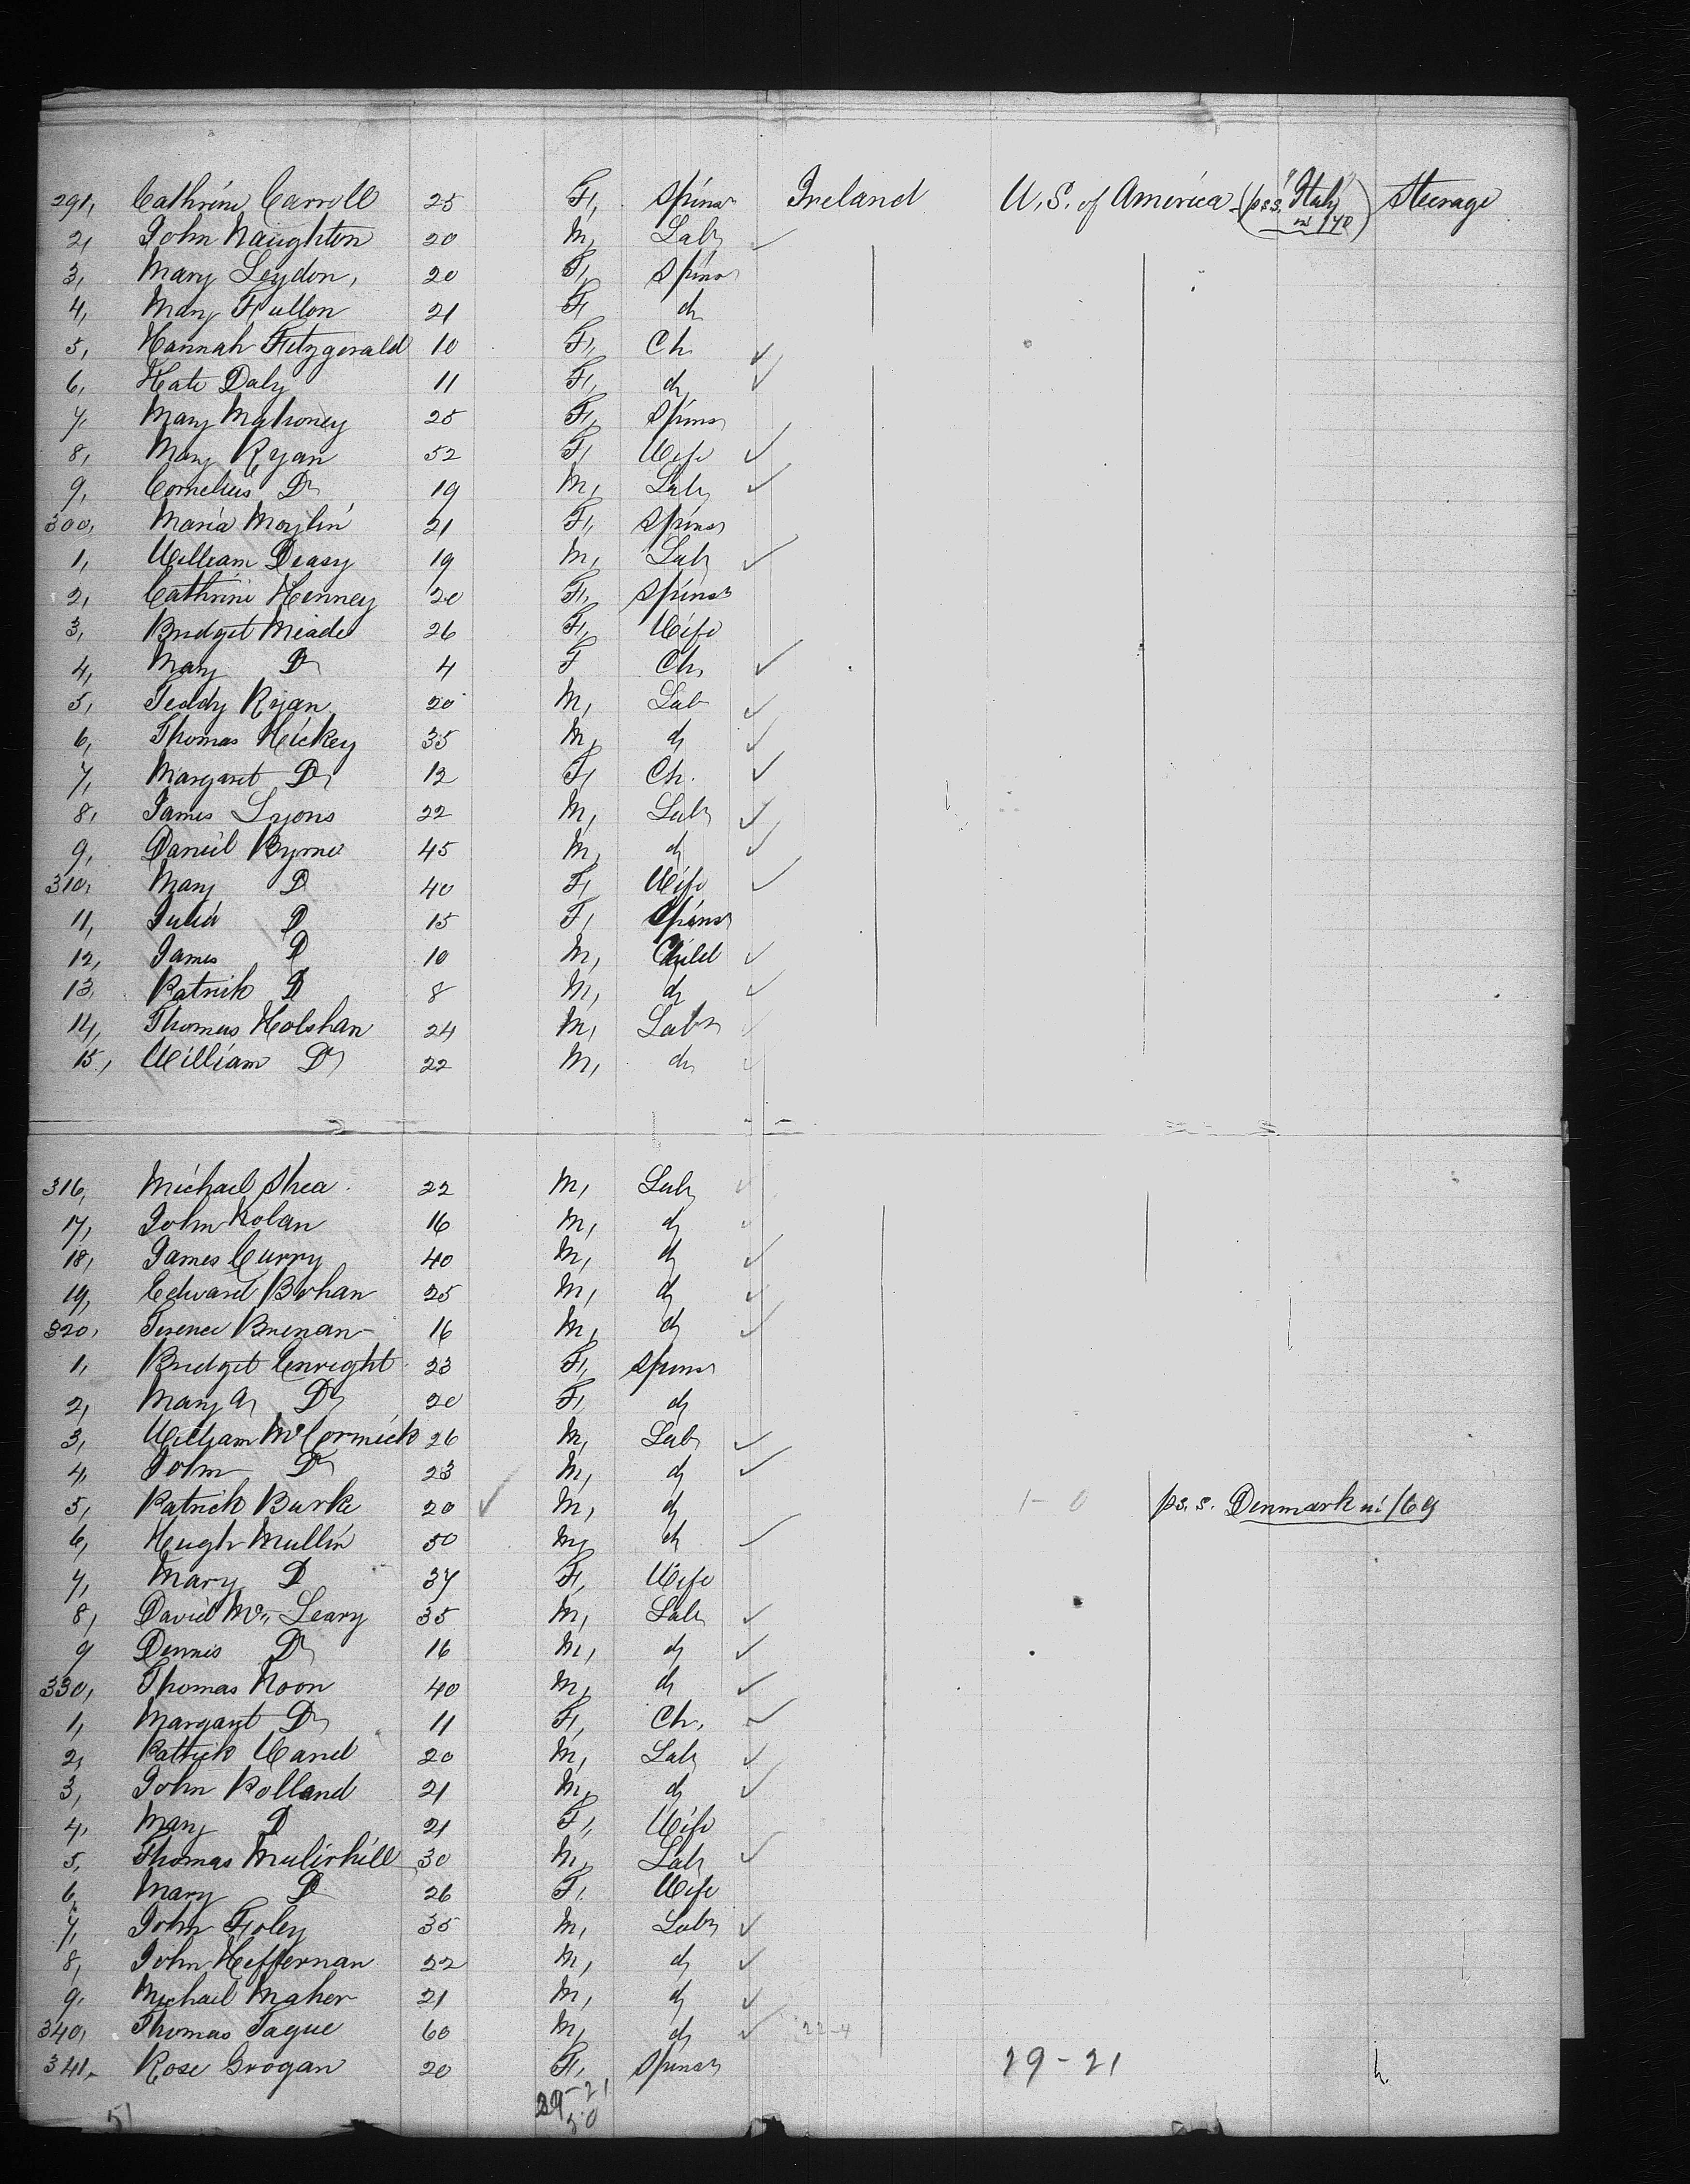 291, Cathrine Carroll 25 F, Spinsr Ireland U.S. of America (p s.s. "Italy" /70) Steerage
2, John Naughton 20 M, Labr
3, Mary Leydon, 20 F, Spinsr
4, Mary Fullon 21 F, do
5, Hannah Fitzgerald 10 F, Ch.
6, Kate Daly 11 F, do
7, Mary Mahoney 25 F, Spinsr
8, Mary Ryan 52 F, Wife
9, Cornelius Do 19 M, Labr
300, Maria Moylin 21 F, Spinsr
1, William Deasy 19 M, Labr
2, Cathrine Kenney 20 F, Spinsr
3, Bridget Meade 26 F, Wife
4, Mary Do 4 F Ch,
5, Teddy Ryan 20 M, Lab
6, Thomas Hickey 35 M, do
7, Margaret Do 12 F, Ch.
8, James Lyons 22 M, Labr
9, Daniel Byrne 45 M, do
310, Mary D 40 F, Wife
11, Julia D 15 F, Spinsr
12, James D 10 M, Child
13, Patrick D 8 M, do
14, Thomas Holshan 24 M, Labr
15, William Do 22 M, do
316, Michael Shea 22 M, Labr
17, John Nolan 16 M, do
18, James Curry 40 M, do
19, Edward Bohan 25 M, do
320, Terence Brenan 16 M, do
1, Bridget Enright 23 F, Spinsr
2, Mary A, Do 20 F, do
3, William McCormick 26 M, Labr
4, John Do 23 M, do
5, Patrick Burke 20 M, do 1 - 0 p s.s. Denmark /69
6, Hugh Mullin 50 M, do
7, Mary D 37 F, Wife
8, David Mc Leary 35 M, Labr
9 Dennis Do 16 M, do
330, Thomas Noon 40 M, do
1, Margaret Do 11 F, Ch,
2, Patrick Ward 20 M, Labr
3, John Rolland 21 M, do
4, Mary D 21 F, Wife
5, Thomas Mulirhill 30 M, Labr
6, Mary D 26 F, Wife
7, John Foley 35 M, Labr
8, John Heffernan 22 M, do
9, Michael Maher 21 M, do
340, Thomas Tague 60 M, do 22-4
341, Rose Grogan 20 F, Spinsr 29-21
29-21
50
51